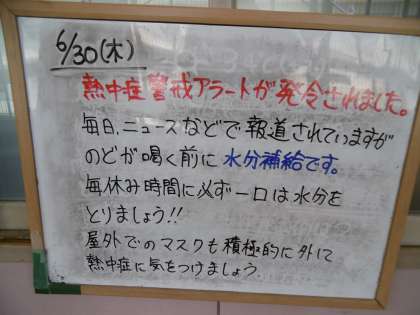 6/30(木)
熱中症警戒アラートが発令されました。
毎日、ニュースなどで報道されていますが
のどが喝く前に水分補給です。
毎休み時間に必ず一口は水分を
とりましょう!!
屋外でのマスクも積極的に外して
熱中症に気をつけましょう。